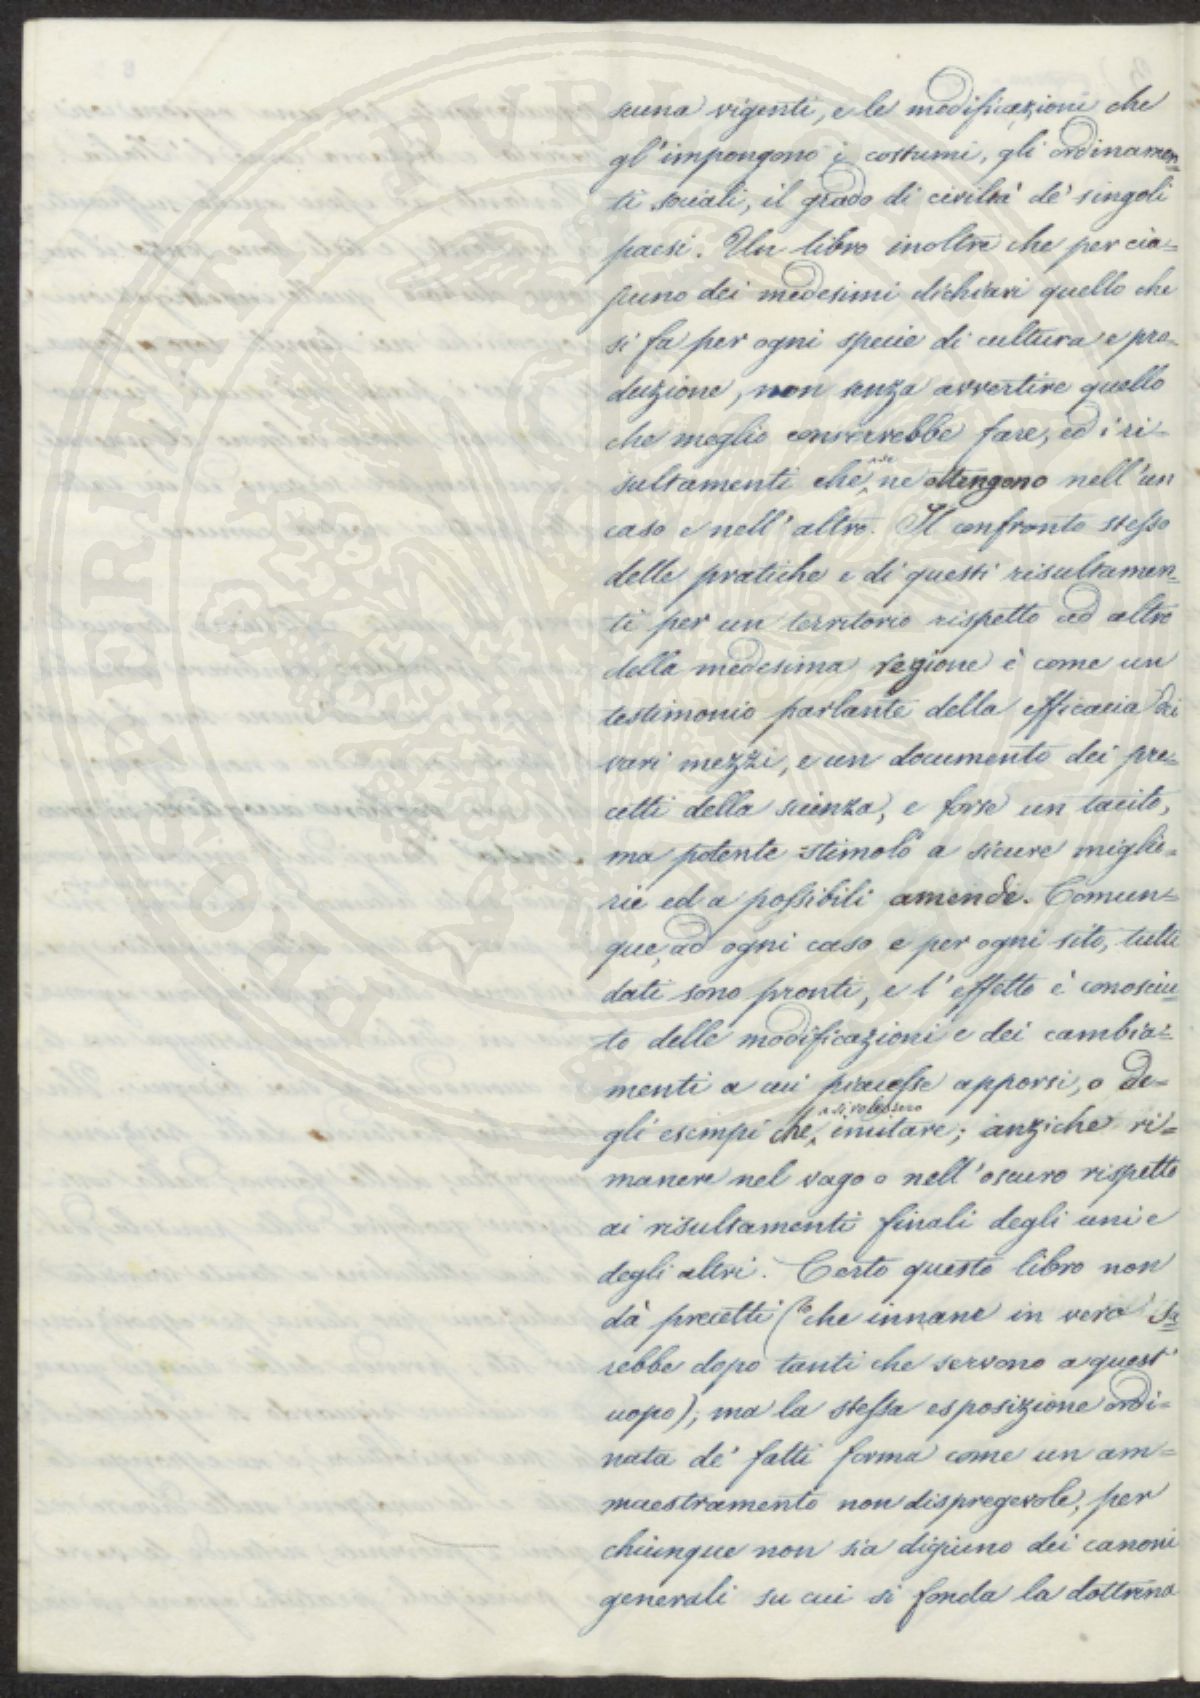 scuna vigenti, e le modificazioni che
gl'impongono i costumi, gli ordinamen=
ti sociali, il grado di civiltà de' singoli
paesi. Un libro inoltre che per cia=
scuno dei medesimi dichiari quello che
si fa per ogni specie di cultura e pro=
duzione, non senza avvertire quello
che meglio converrebbe fare, ed i ri=
sultamenti che se ne ottengono nell'un
caso e nell'altro. Il confronto stesso
delle pratiche e di questi risultamen=
ti per un territorio rispetto ad altro
della medesima regione è come un
testimonio parlante della efficacia dei
vari mezzi, e un documento dei pre=
cetti della scienza, e forse un tacito,
ma potente stimolo a sicure miglio=
rie ed a possibili amende. Comun=
que, ad ogni caso e per ogni sito, tutti
dati sono pronti, e l'effetto è conosciu=
to delle modificazioni e dei cambia=
menti a cui piacesse apporsi, o de=
gli esempi che si volessero imitare; anziche ri=
manere nel vago o nell'oscuro rispetto
ai risultamenti finali degli uni e
degli altri. Certo questo libro non
dà precetti (che innane in vero sa=
rebbe dopo tanti che servono a quest'
uopo); ma la stessa esposizione ordi=
nata de' fatti forma come un am=
maestramento non dispregevole, per
chiunque non sia digiuno dei canoni
generali su cui si fonda la dottrina
PROPRIETATI PVBLICAE